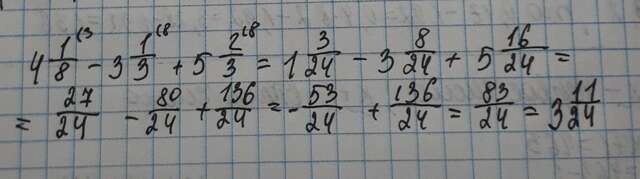 4 1/8 (3 - 3 1/3 (8 + 5 2/3 (8 = 1 3/24 - 3 8/24 + 5 16/24 =
= 27/24 - 80/24 + 136/24 = - 53/24 + 136/24 = 83/24 = 3 11/24